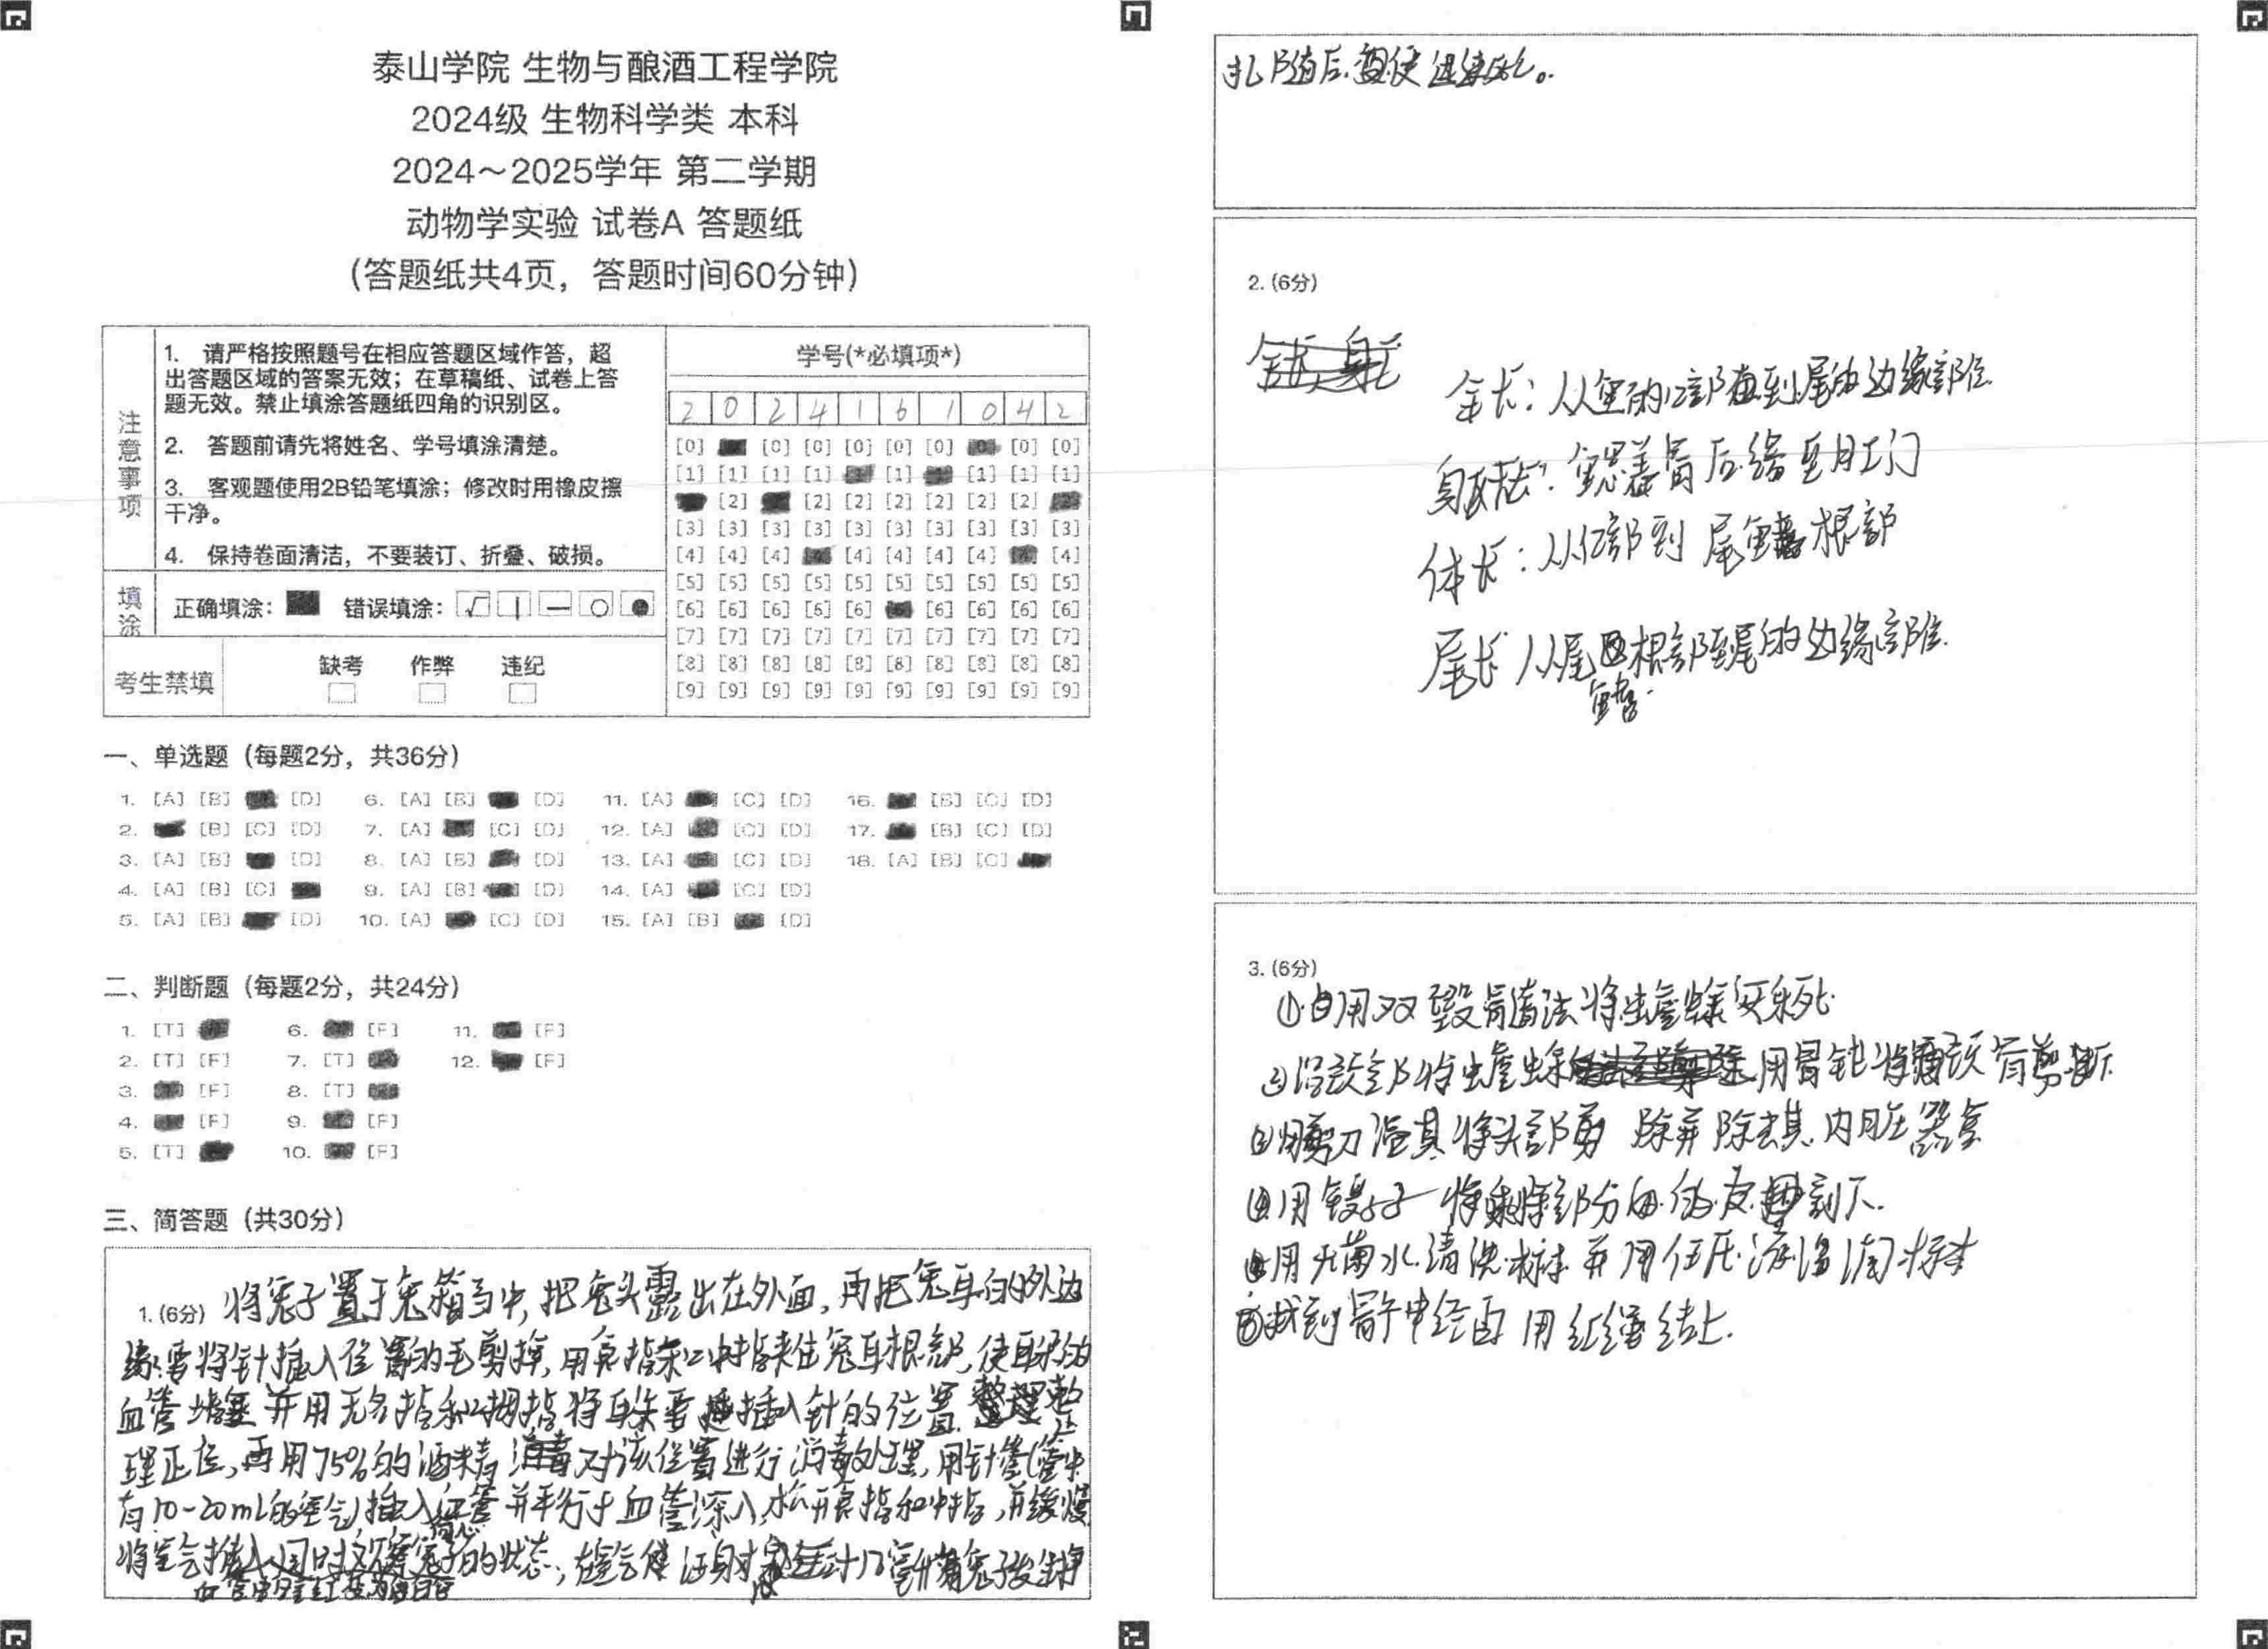 泰山学院 生物与酿酒工程学院
2024级 生物科学类 本科
2024～2025学年 第二学期
动物学实验 试卷A 答题纸
(答题纸共4页，答题时间60分钟)
注意事项
1. 请严格按照题号在相应答题区域作答，超
出答题区域的答案无效；在草稿纸、试卷上答
题无效。禁止填涂答题纸四角的识别区。
2. 答题前请先将姓名、学号填涂清楚。
3. 客观题使用2B铅笔填涂；修改时用橡皮擦
干净。
4. 保持卷面清洁，不要装订、折叠、破损。
填涂
正确填涂： 错误填涂：
考生禁填
缺考 作弊 违纪
学号(*必填项*)
2 0 2 4 1 6 1 0 4 2
[0] [0] [0] [0] [0] [0] [0] [0] [0]
[1] [1] [1] [1] [1] [1] [1] [1]
[2] [2] [2] [2] [2] [2] [2]
[3] [3] [3] [3] [3] [3] [3] [3] [3] [3]
[4] [4] [4] [4] [4] [4] [4] [4]
[5] [5] [5] [5] [5] [5] [5] [5] [5] [5]
[6] [6] [6] [6] [6] [6] [6] [6] [6]
[7] [7] [7] [7] [7] [7] [7] [7] [7] [7]
[8] [8] [8] [8] [8] [8] [8] [8] [8] [8]
[9] [9] [9] [9] [9] [9] [9] [9] [9] [9]
一、单选题（每题2分，共36分）
1. [A] [B] [D] 6. [A] [B] [D] 11. [A] [C] [D] 16. [B] [C] [D]
2. [B] [C] [D] 7. [A] [C] [D] 12. [A] [C] [D] 17. [B] [C] [D]
3. [A] [B] [D] 8. [A] [B] [D] 13. [A] [C] [D] 18. [A] [B] [C]
4. [A] [B] [C] 9. [A] [B] [D] 14. [A] [C] [D]
5. [A] [B] [D] 10. [A] [C] [D] 15. [A] [B] [D]
二、判断题（每题2分，共24分）
1. [T] 6. [F] 11. [F]
2. [T] [F] 7. [T] 12. [F]
3. [F] 8. [T]
4. [F] 9. [F]
5. [T] 10. [F]
三、简答题（共30分）
1. (6分) 将兔子置于兔箱当中，把兔头露出在外面，再把兔耳的外边
缘需将针插入位置的毛剪掉，用食指和中指夹住兔耳根部，使耳朵的
血管堵塞并用无名指和拇指将耳朵要插入针的位置整理
理正位，再用75%的酒精对该位置进行消毒处理，用针管(管中
有10-20mL的空气)插入血管并平行于血管深入，松开食指和中指，并缓慢
将空气推入同时观察兔子的状态，
扎后
2. (6分)
全长：从鱼的口部直到尾的边缘部位
身长：鳃盖骨后缘至肛门
体长：从口部到尾鳍根部
尾长 从尾鳍根部到尾的边缘部位
3. (6分)
①用双毁髓法将蟾蜍处死
②用骨钳将颈背剪断
③用剪刀沿其将头部剪除并除去其内脏器官
④用镊子将剩余部分的皮剥下
用无菌水清洗并用任氏液湿润标本
找到神经用红绳结上.